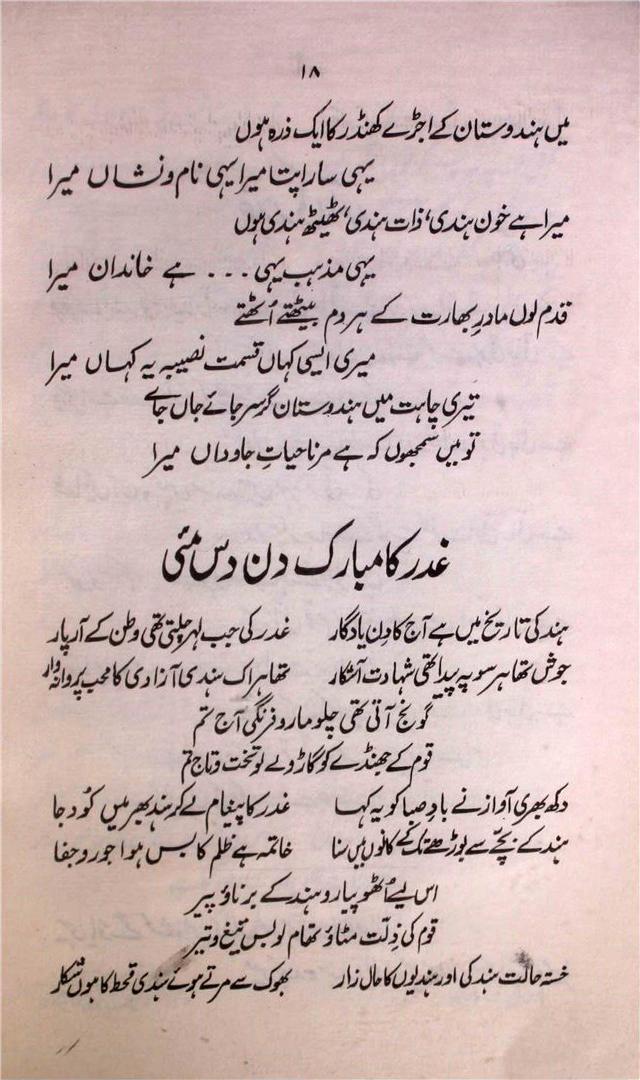 ۱۸
میں ہندوستان کے اجڑے کھنڈر کا ایک ذرہ ہوں
یہی سارا پتا میرا یہی نام و نشاں میرا
میرا ہے خون ہندی، ذات ہندی، ٹھیٹھ ہندی ہوں
یہی مذہب یہی ... ہے خاندان میرا
قدم لوں مادرِ بھارت کے ہر دم بیٹھتے اُٹھتے
میری ایسی کہاں قسمت نصیبہ یہ کہاں میرا
تیری چاہت میں ہندوستان گر سر جائے جاں جائے
تو میں سمجھوں کہ ہے مرنا حیاتِ جاوداں میرا
غدر کا مبارک دن دس مئی
ہند کی تاریخ میں ہے آج کا دِن یادگار غدر کی جب لہر چلتی تھی وطن کے آر پار
جوش تھا ہر سو پہ پیدا تھی شہادت آشکار تھا ہر اک ہندی آزادی کا محب پروانہ وار
گونج آتی تھی چلو مارو فرنگی آج تم
قوم کے جھنڈے کو گاڑو لے لو تخت و تاج تم
دکھ بھری آواز نے بادِ صبا کو یہ کہا غدر کا پیغام لے کر ہند بھر میں کُود جا
ہند کے بچّے سے بوڑھے تک کے کانوں میں سنا خاتمہ ہے ظلم کا بس ہوا جور و جفا
اس لیے اُٹھو پیارو ہند کے برناؤ پیر
قوم کی ذِلّت مٹاؤ تھام لو بس تیغ و تیر
خستہ حالت ہند کی اور ہندیوں کا حال زار بھوک سے مرتے ہوئے ہندی قحط کا ہوں شکار